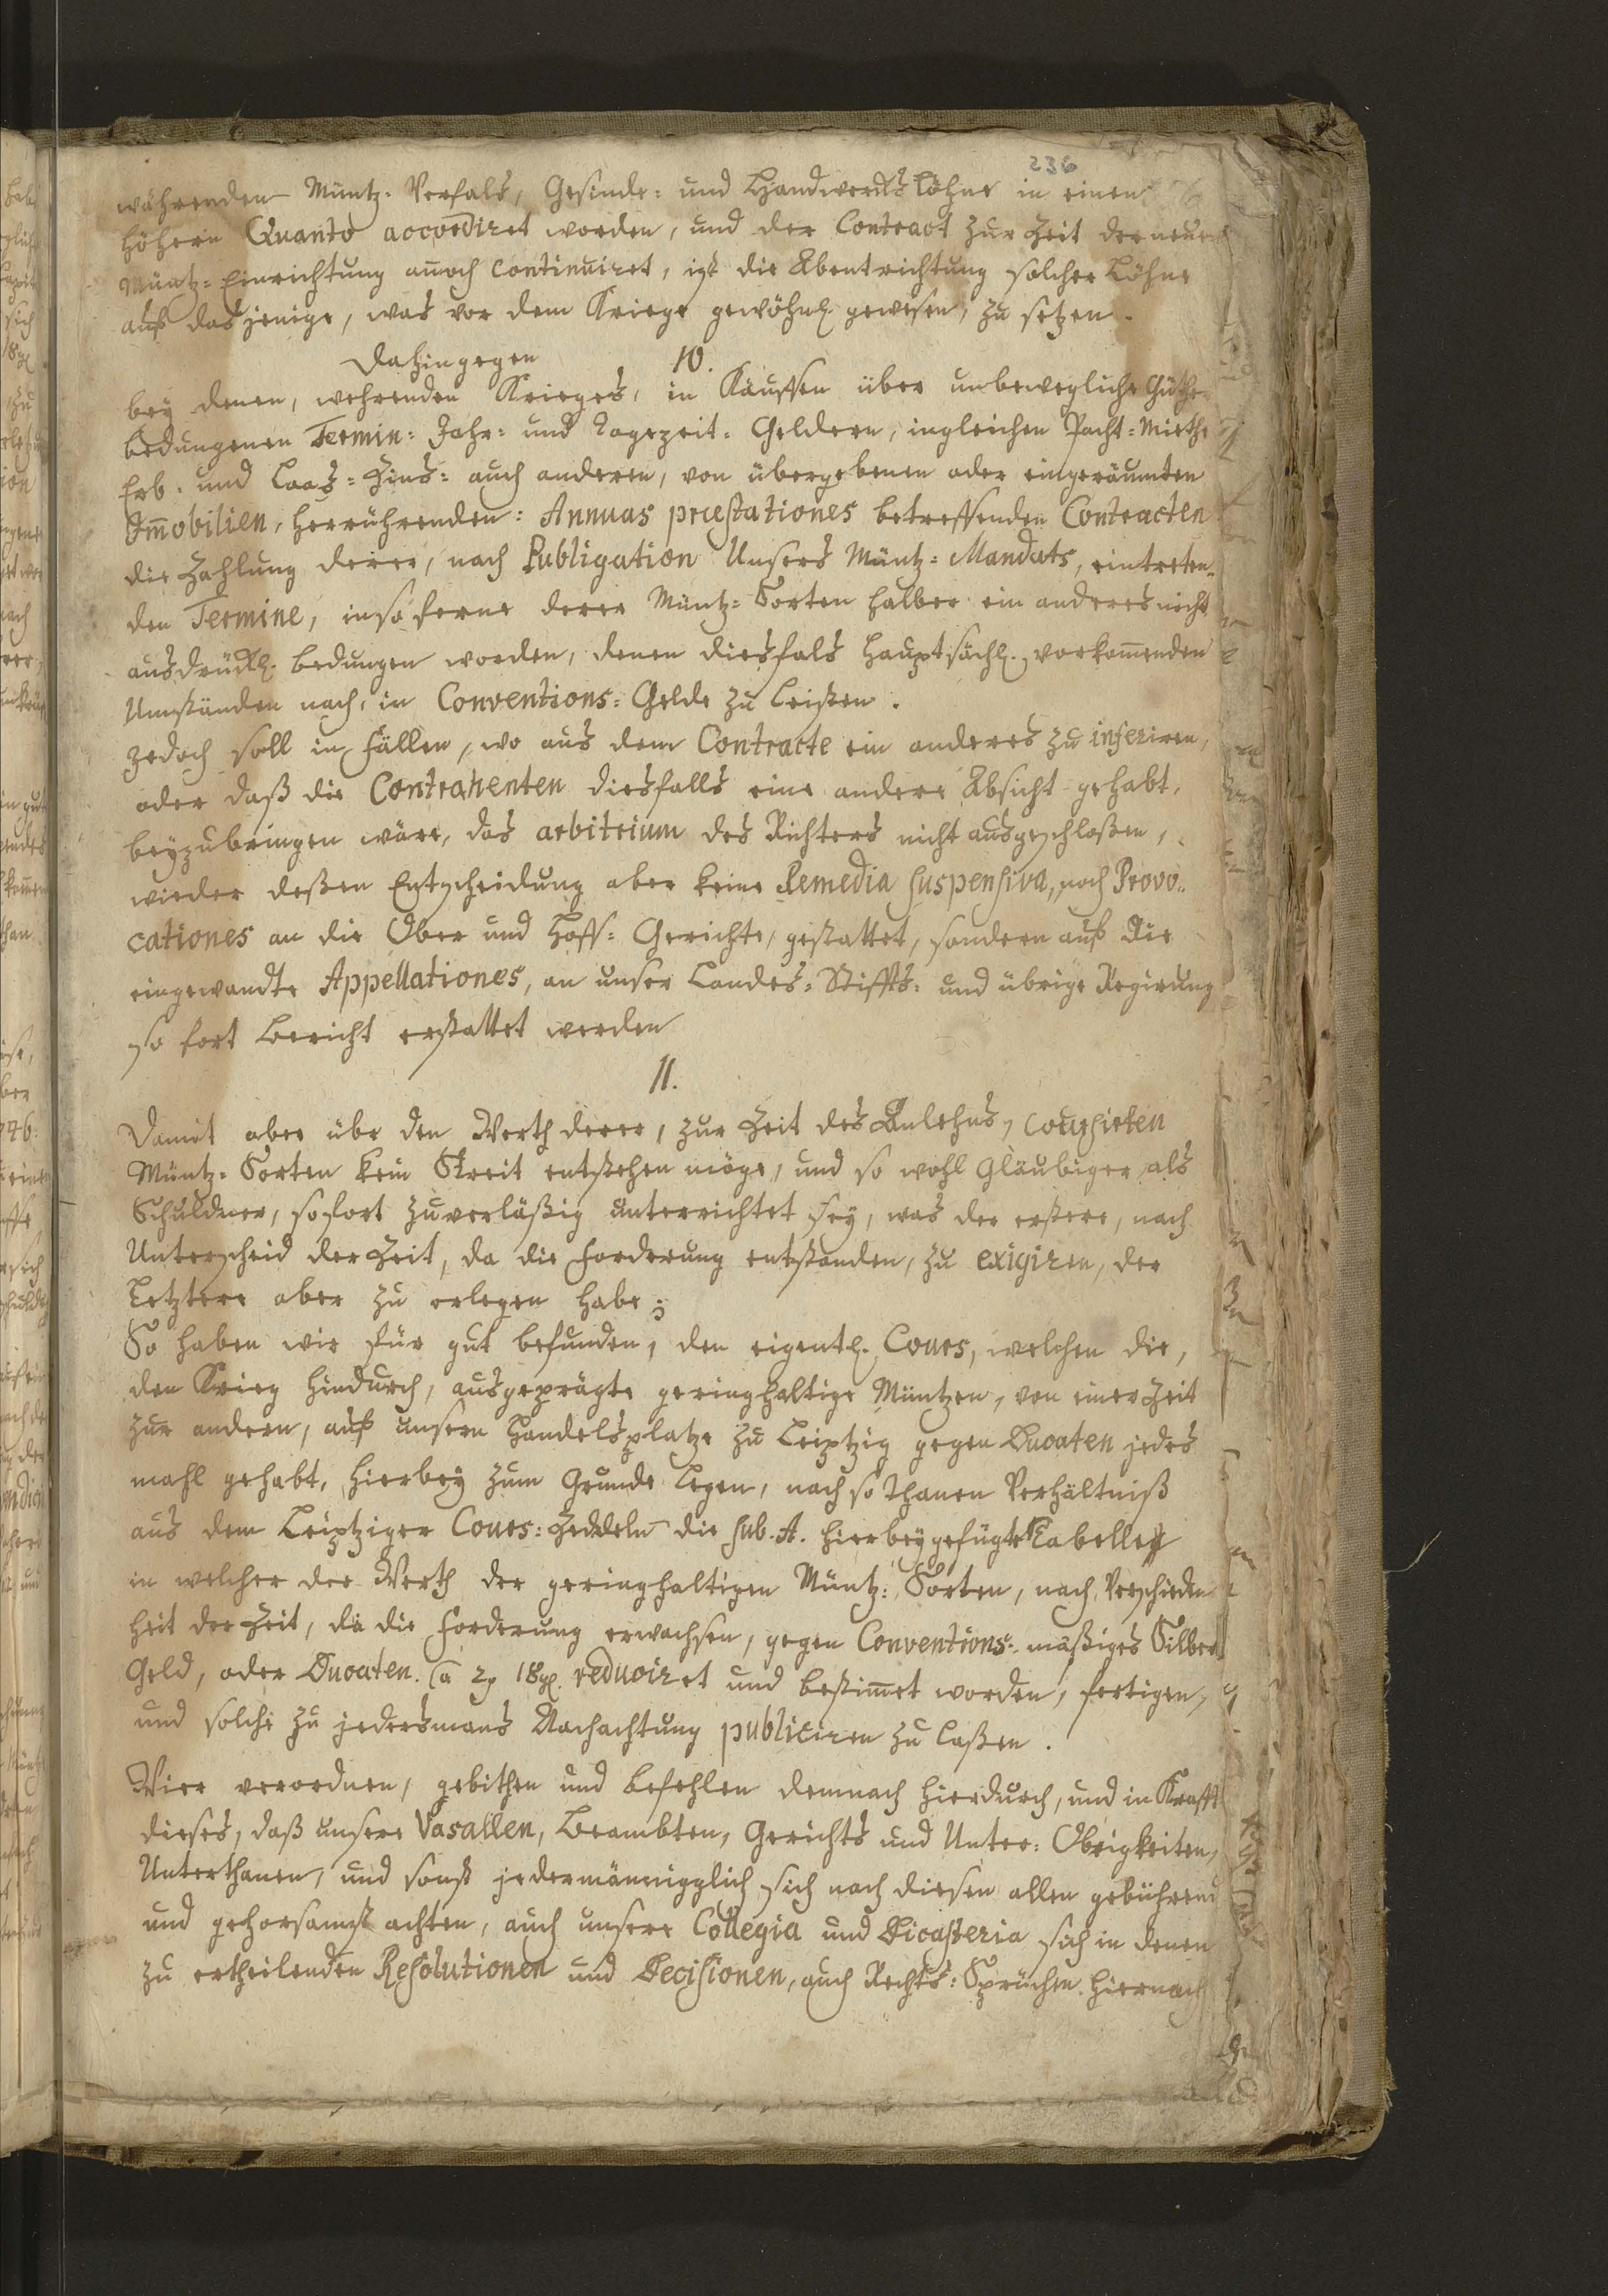 236
währenden Müntz-Verfals, Gesinde- und Handwercks Löhne in einen
höhern Quanto accordiret worden, und der Contract zur Zeit der neuen
Müntz-Einrichtung annoch continuiret, ist die Abentrichtung solcher Löhne
auf das jenige, was vor dem Kriege gewöhnl. gewesen, zu setzen.
10.
Dahingegen
bey denen, wehrenden Krieges, in Käuffen über unbewegliche Güther
bedungenen Termin- Jahr- und Tagezeit-Geldern, ingleichen Pacht-Mieth
Erb- und Laas-Zins- auch anderen, von übergebenen oder eingeräumten
Im̅obilien, herrührenden: Annuas præstationes betreffenden Contracten
die Zahlung derer, nach Publigation Unsers Müntz-Mandats, eintreten-
den Termine, in so ferne derer Müntz-Sorten halber ein anderes nicht
ausdrückl. bedungen worden, denen diesfals hauptsächl. vorkom̅enden
Umständen nach, in Conventions-Gelde zu leisten.
jedoch soll in Fällen, wo aus dem Contracte ein anderes zu inferiren,
oder daß die Contrahenten diesfalls eine andere Absicht gehabt,
beyzubringen wäre, das arbitrium des Richters nicht ausgeschloßen,
wieder deßen Entscheidung aber keine Remedia suspensiva, noch Provo-
cationes an die Ober und Hoff-Gerichte, gestattet, sondern auf die
eingewandte Appellationes, an unser Landes- Stiffts- und übrige Regirung
so fort Bericht erstattet werden
11.
Damit aber übr den Werth derer, zur Zeit des Anlehns, coursirten
Müntz-Sorten kein Streit entstehen möge, und so wohl Gläubiger als
Schuldner, sofort zuverläßig unterrichtet sey, was der erstere, nach
Unterscheid der Zeit, da die Forderung entstanden, zu exigiren, der
Letztere aber zu erlegen habe;
So haben wir für gut befunden, den eigentl. Cours, welchen die,
den Krieg hindurch, ausgeprägte geringhaltige Müntzen, von einer Zeit
zur andern, auf unsern Handelsplatze zu Leiptzig gegen Ducaten jedes
mahl gehabt, hierbey zum Grunde legen, nach so thanen Verhältniß
aus dem Leiptziger Cours-Zeddeln die sub. A. hierbeygefügte Tabelle
in welcher der Werth der geringhaltigen Müntz-Sorten, nach Verschieden
heit der Zeit, da die Forderung erwachsen, gegen Conventions-mäßiges Silber
Geld, oder Ducaten. (à 2 18 gl. reduciret und bestim̅et worden, fertigen,
und solche zu jedersmans Nachachtung publiciren zu laßen.
Wier verordnen, gebithen und befehlen demnach hierdurch, und in Krafft
dieses, daß unsere Vasallen, Beambten, Gerichts und Unter-Obrigkeiten,
Unterthanen, und sonst jedermännigglich sich nach diesen allen gebührend
und gehorsamst achten, auch unsere Collegia und Dicasteria sich in denen
zu ertheilenden Resolutionen und Decisionen, auch Rechts-Sprüchen. hiernach